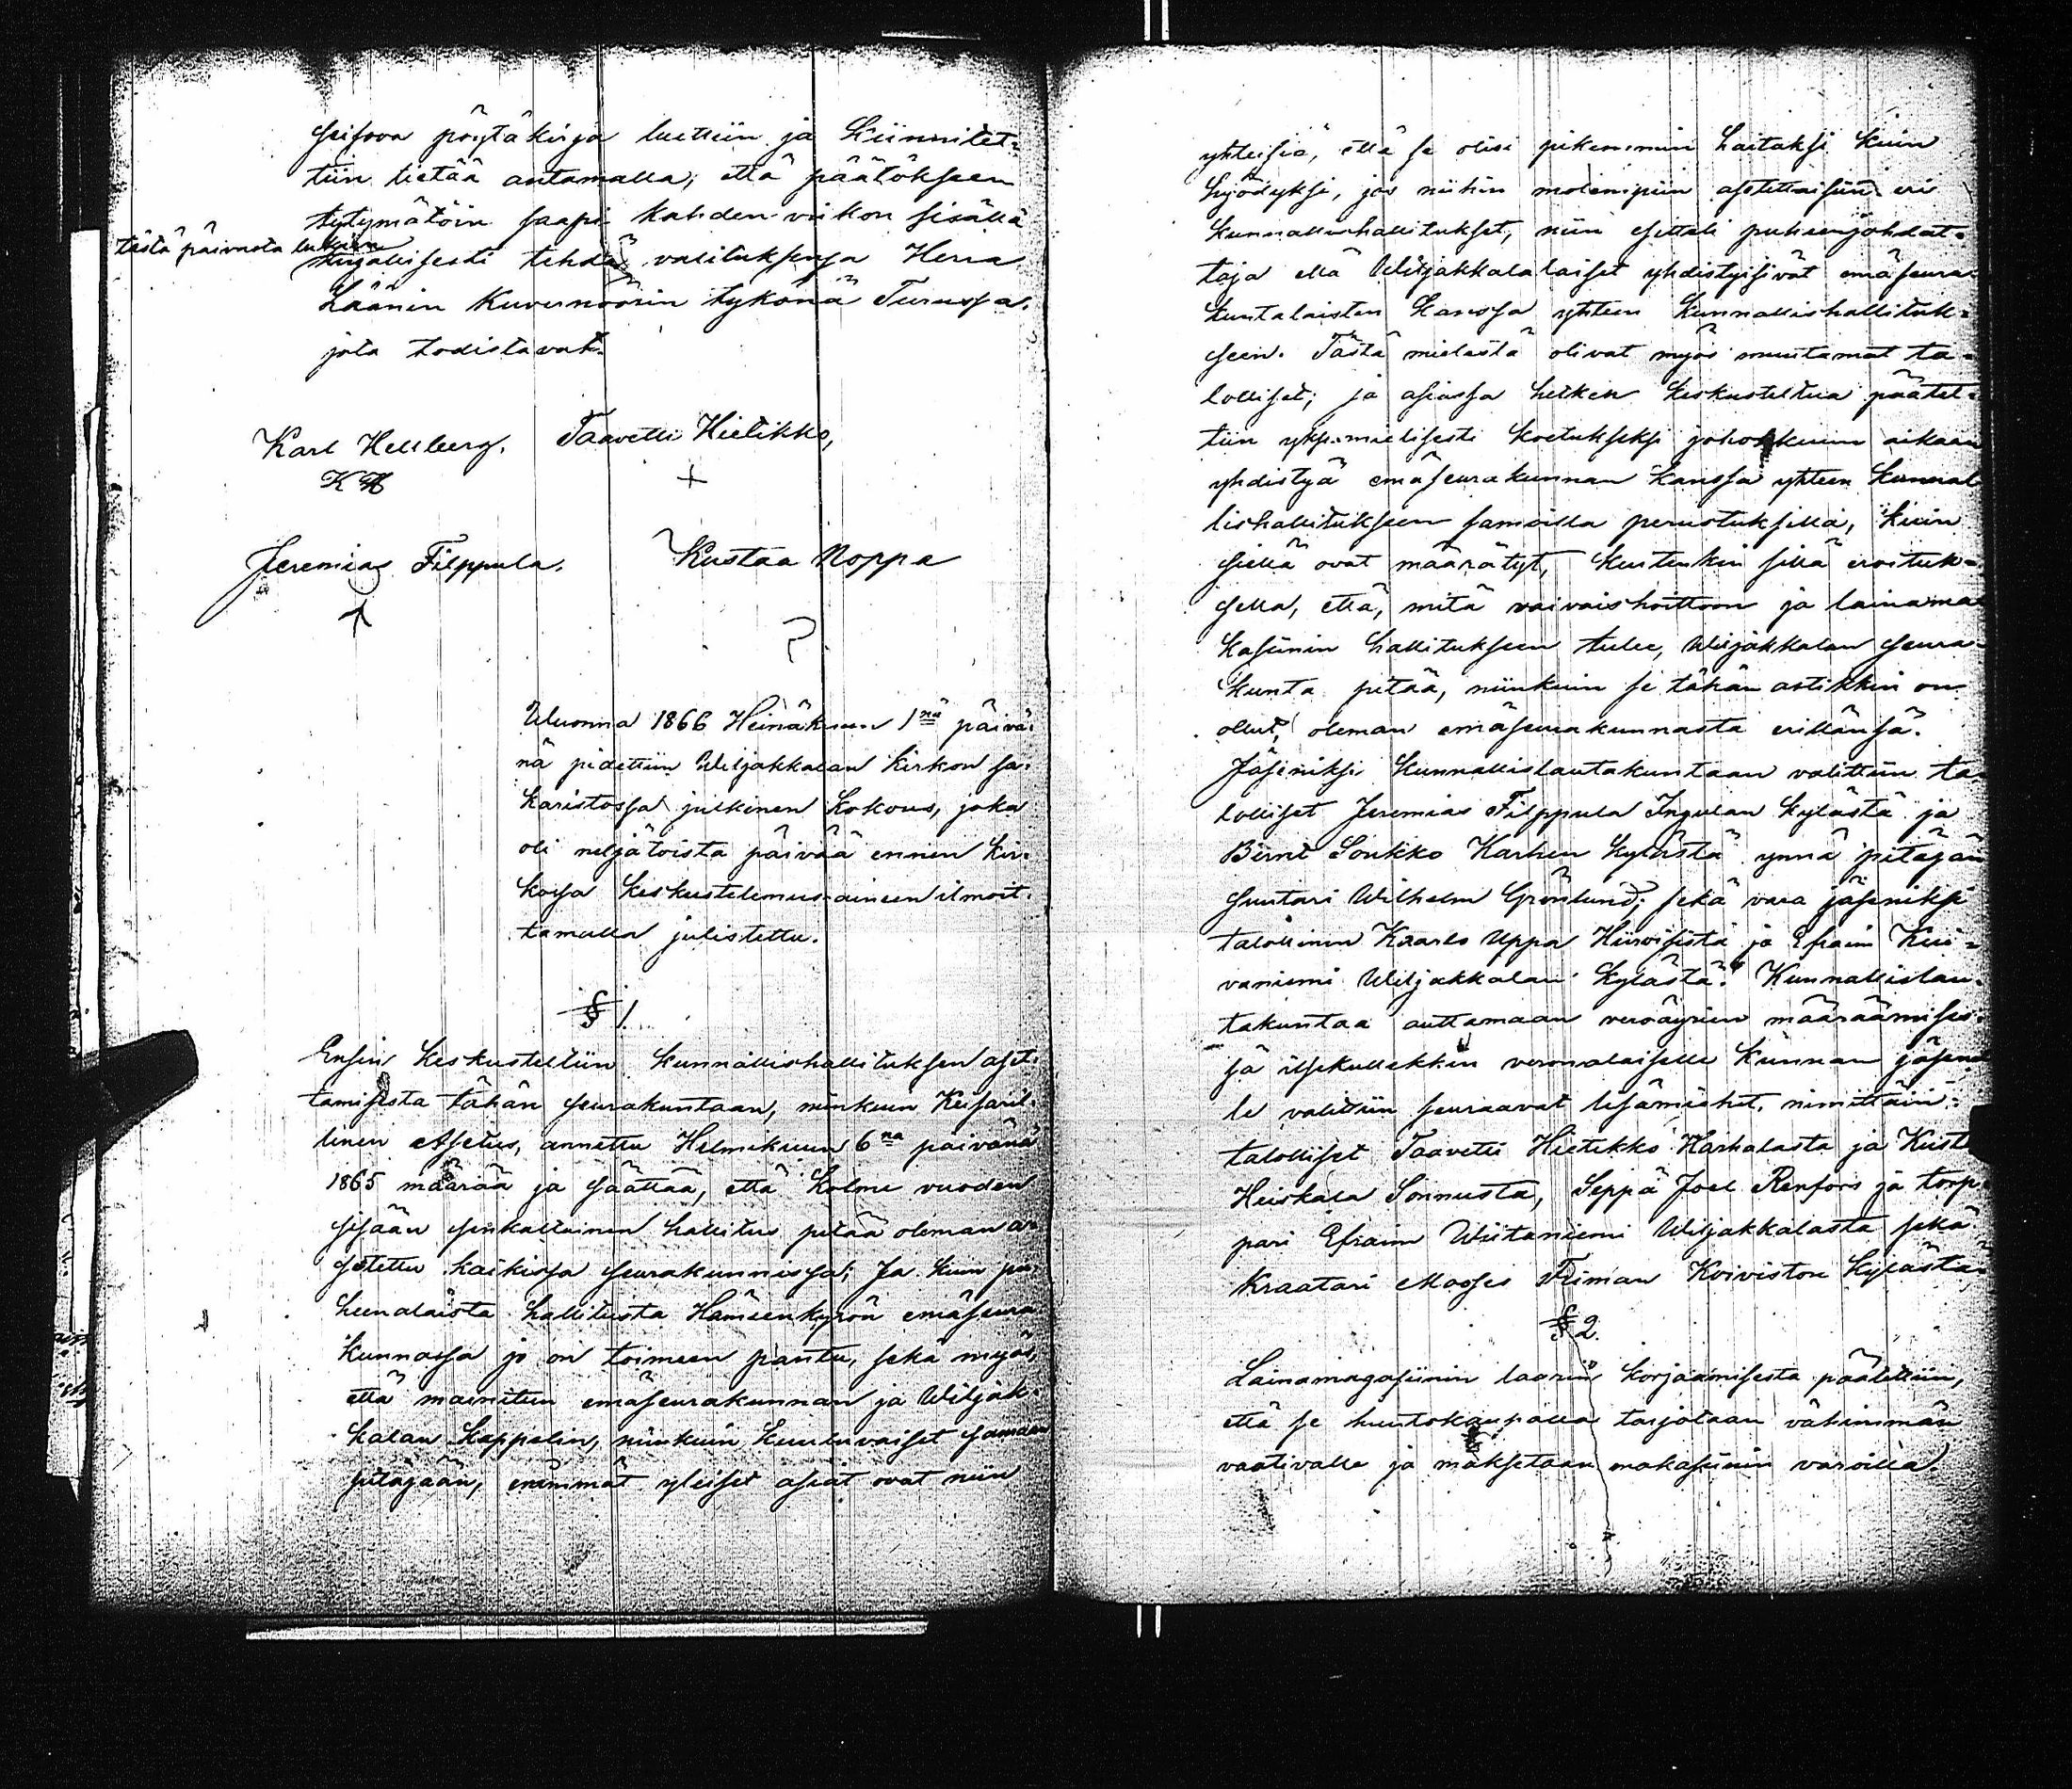 seisova pöytäkirja luettiin ja kiinnitet-
tiin tietää antamalla, että päätökseen
tytymätöin saapi kahden viikon sisällä
tästä päivästä lukien
kirjallisesti tehdä valituksensa Herra
Läänin Kuvernöörin tykönä Turussa.
jota todistavat.
Karl Hellberg. Taavetti Hietikko,
KH +
Jeremias Filppula. Kustaa Noppa
Wuonna 1866 Heinäkuun 1nä päivä-
nä pidettiin Wiljakkalan kirkon sa-
karistossa julkinen kokous, joka
oli neljätoista päivää ennen kir-
kossa keskustelemus-aineen ilmoit-
tamalla julistettu.
§ 1.
Ensin keskusteltiin kunnallishallituksen aset-
tamisesta tähän seurakuntaan, niinkuin Keisaril-
linen Asetus, annettu Helmikuun 6na päivänä
1865 määrää ja säättää, että kolme vuoden
sisään senkaltainen hallitus pitää oleman a-
setettu kaikissa seurakunnissa; Ja kuin pu-
heenalaista hallitusta Hämeenkyrön emäseura
kunnassa jo on toimeen pantu, sekä myös,
että mainitun emäseurakunnan ja Wiljak-
kalan kappelin, niinkuin kuuluvaiset samaan
pitäjään, enimmät yleiset asiat ovat niin
yhteisiä, että se olisi pikemmin haitaksi kuin
hyödyksi, jos niihin molempiin asetettaisiin eri
kunnallishallitukset, niin esitteli puheenjohdat-
taja että Wiljakkalalaiset yhdistyisivät emäseura-
kuntalaisten kanssa yhteen kunnallishallituk-
seen. Tästä mielestä olivat myös muutamat ta-
lolliset; ja asiassa hetken keskusteltua päätet-
tiin yksimielisesti koetukseksi johonkuun aikaan
yhdistyä emäseurakunnan kanssa yhteen kunnal
lishallitukseen samoilla perustuksilla, kuin
siellä ovat määrätyt, kuitenkin sillä eroituk-
sella, että, mitä vaivaishoittoon ja lainama
kasiinin hallitukseen tulee, Wiljakkalan seura-
kunta pitää, niinkuin se tähän astikkin on
ollut, oleman emäseurakunnasta erillänsä.
Jäseniksi kunnallislautakuntaan valittiin ta-
lolliset Jeremias Filppula Ingulan kylästä ja
Berni Soukko Karhen kylästä ynnä pitäjän
suutari Wilhelm Grönlund; sekä vara jäseniksi
talollinen Kaarlo Uppa Hiiroisista ja Efraim Kii-
vaniemi Wiljakkalan kylästä. Kunnallislau-
takuntaa auttamaan veroäyrien määräämises-
sä itsekullekkin veronalaiselle kunnan jäsenel
le valittiin seuraavat lisämiehet, nimittäin:
talolliset Taavetti Hietikko Karhalasta ja Kusta
Heiskala Sonnusta, Seppä Joel Renfors ja torp-
pari Efraim Wiitaniemi Wiljakkalasta sekä
kraatari Mooses Friman Koiviston kylästä.
§ 2.
Lainamagasiinin laarin korjaamisesta päätettiin,
että se huutokaupalla tarjotaan vähimmän
vaativalle ja maksetaan makasiinin varoilla.